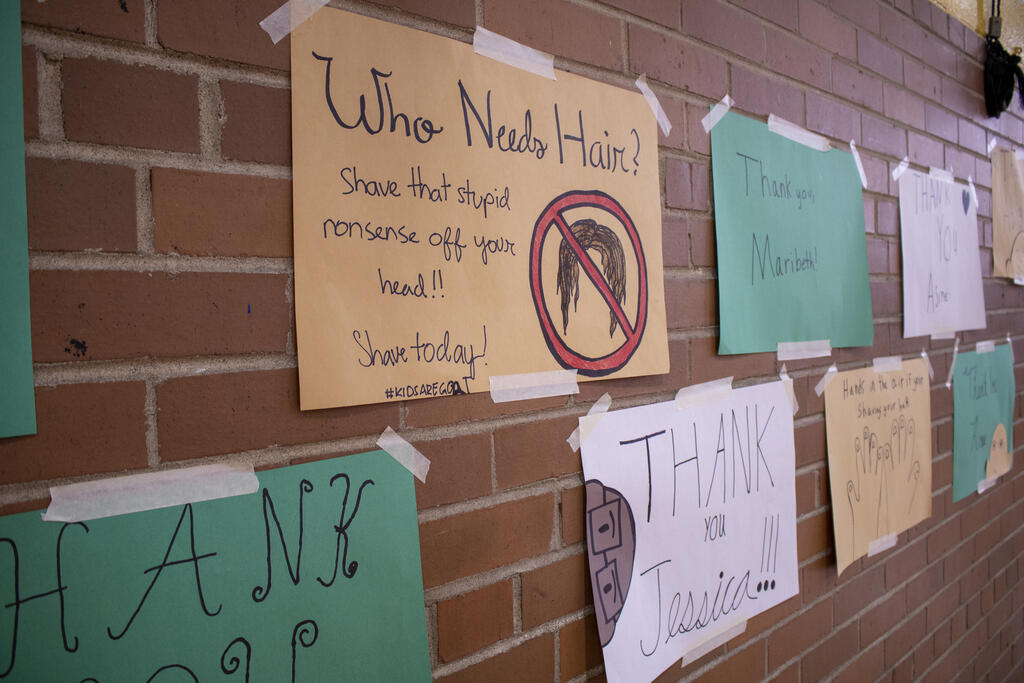 Who Needs Hair?
Shave that stupid
nonsense off your
head!!
Shave today!
Thank you,
Maribeth!
THANK
YOU
HANK
THANK
YOU
Jessica!!!
Hands in the air if your
Shaving your
Thank